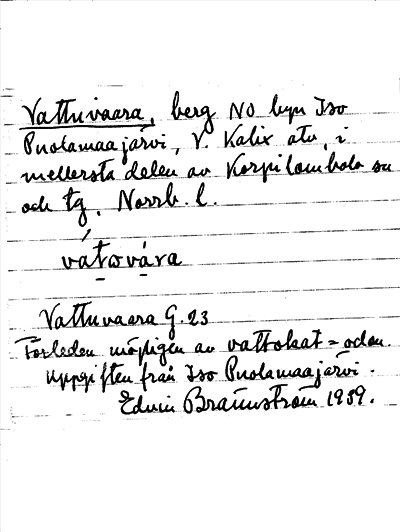 Vattuvaara, berg NO byn Iso
Puolamaajärvi, V. Kalix älv, i
mellersta delen av Korpilombolo sn
och tg. Norrb. l.
vátωvára
Vattuvaara G. 23
Förleden möjligen av vattokat = oden.
Uppgiften från Iso Puolamaajärvi.
Edvin Brännström 1939.